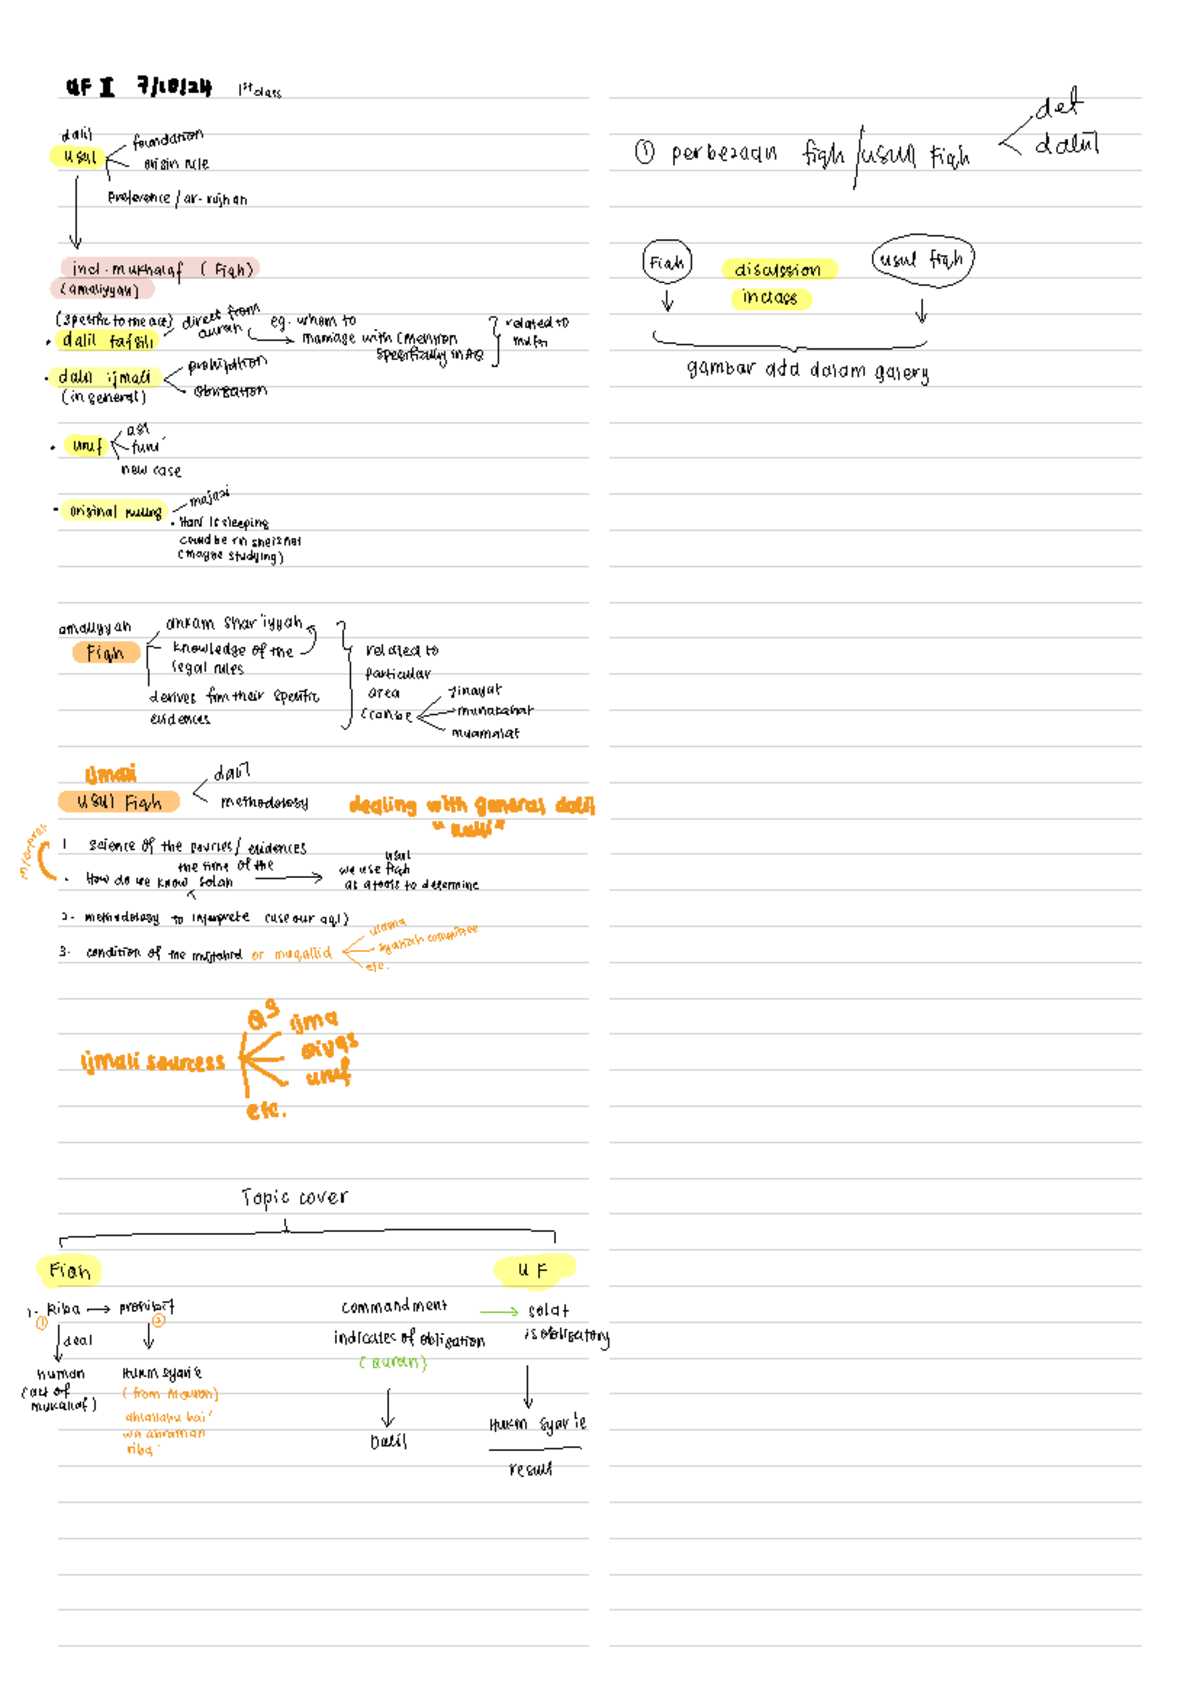 UF I 7/10/24 1st class
dalil
usul
foundation
origin rule
Preference / ar-rujhan
incl. mukhalaf ( Fiqh )
(amaliyyah)
(specific to the act) direct from
quran
eg. whom to
marriage with (mention
specifically in AQ
related to
• dalil tafsili
• dalil ijmali
prohibition
obligation
(in general)
• urruf
asl
furu'
new case
• original ruling
majazi
• Hani is sleeping
could be rn she is not
(maybe studying)
amaliyyah
Fiqh
ahkam shar'iyyah
knowledge of the
legal rules
derives frm their specific
evidences
related to
particular
area
(can be
jinayat
munakahat
muamalat
ijmali
usul Fiqh
dalil
methodology
dealing with general dalil
interpret
1 science of the sources/ evidences
the time of the
• How do we know solah
usul
we use fiqh
as a tools to determine
2- methodology to interprete (use our aql)
3- condition of the mujtahid or muqallid
ulama
syariah committee
etc.
ijmali sourcess
QS
ijma
Qiyas
uruf
etc.
Topic cover
Fiqh
UF
1- Riba → prohibit
1 2
deal
human
(act of
mukallaf)
Hukm syar'ie
(from Alquran)
ahlallahu bai'
wa ahraman
riba'
commandment → solat
indicates of obligation is obligatory
(Quran)
Dalil
Hukm syar'ie
result
① perbezaan fiqh / usul Fiqh
def
dalil
Fiqh
discussion
in class
usul fiqh
gambar ada dalam galery